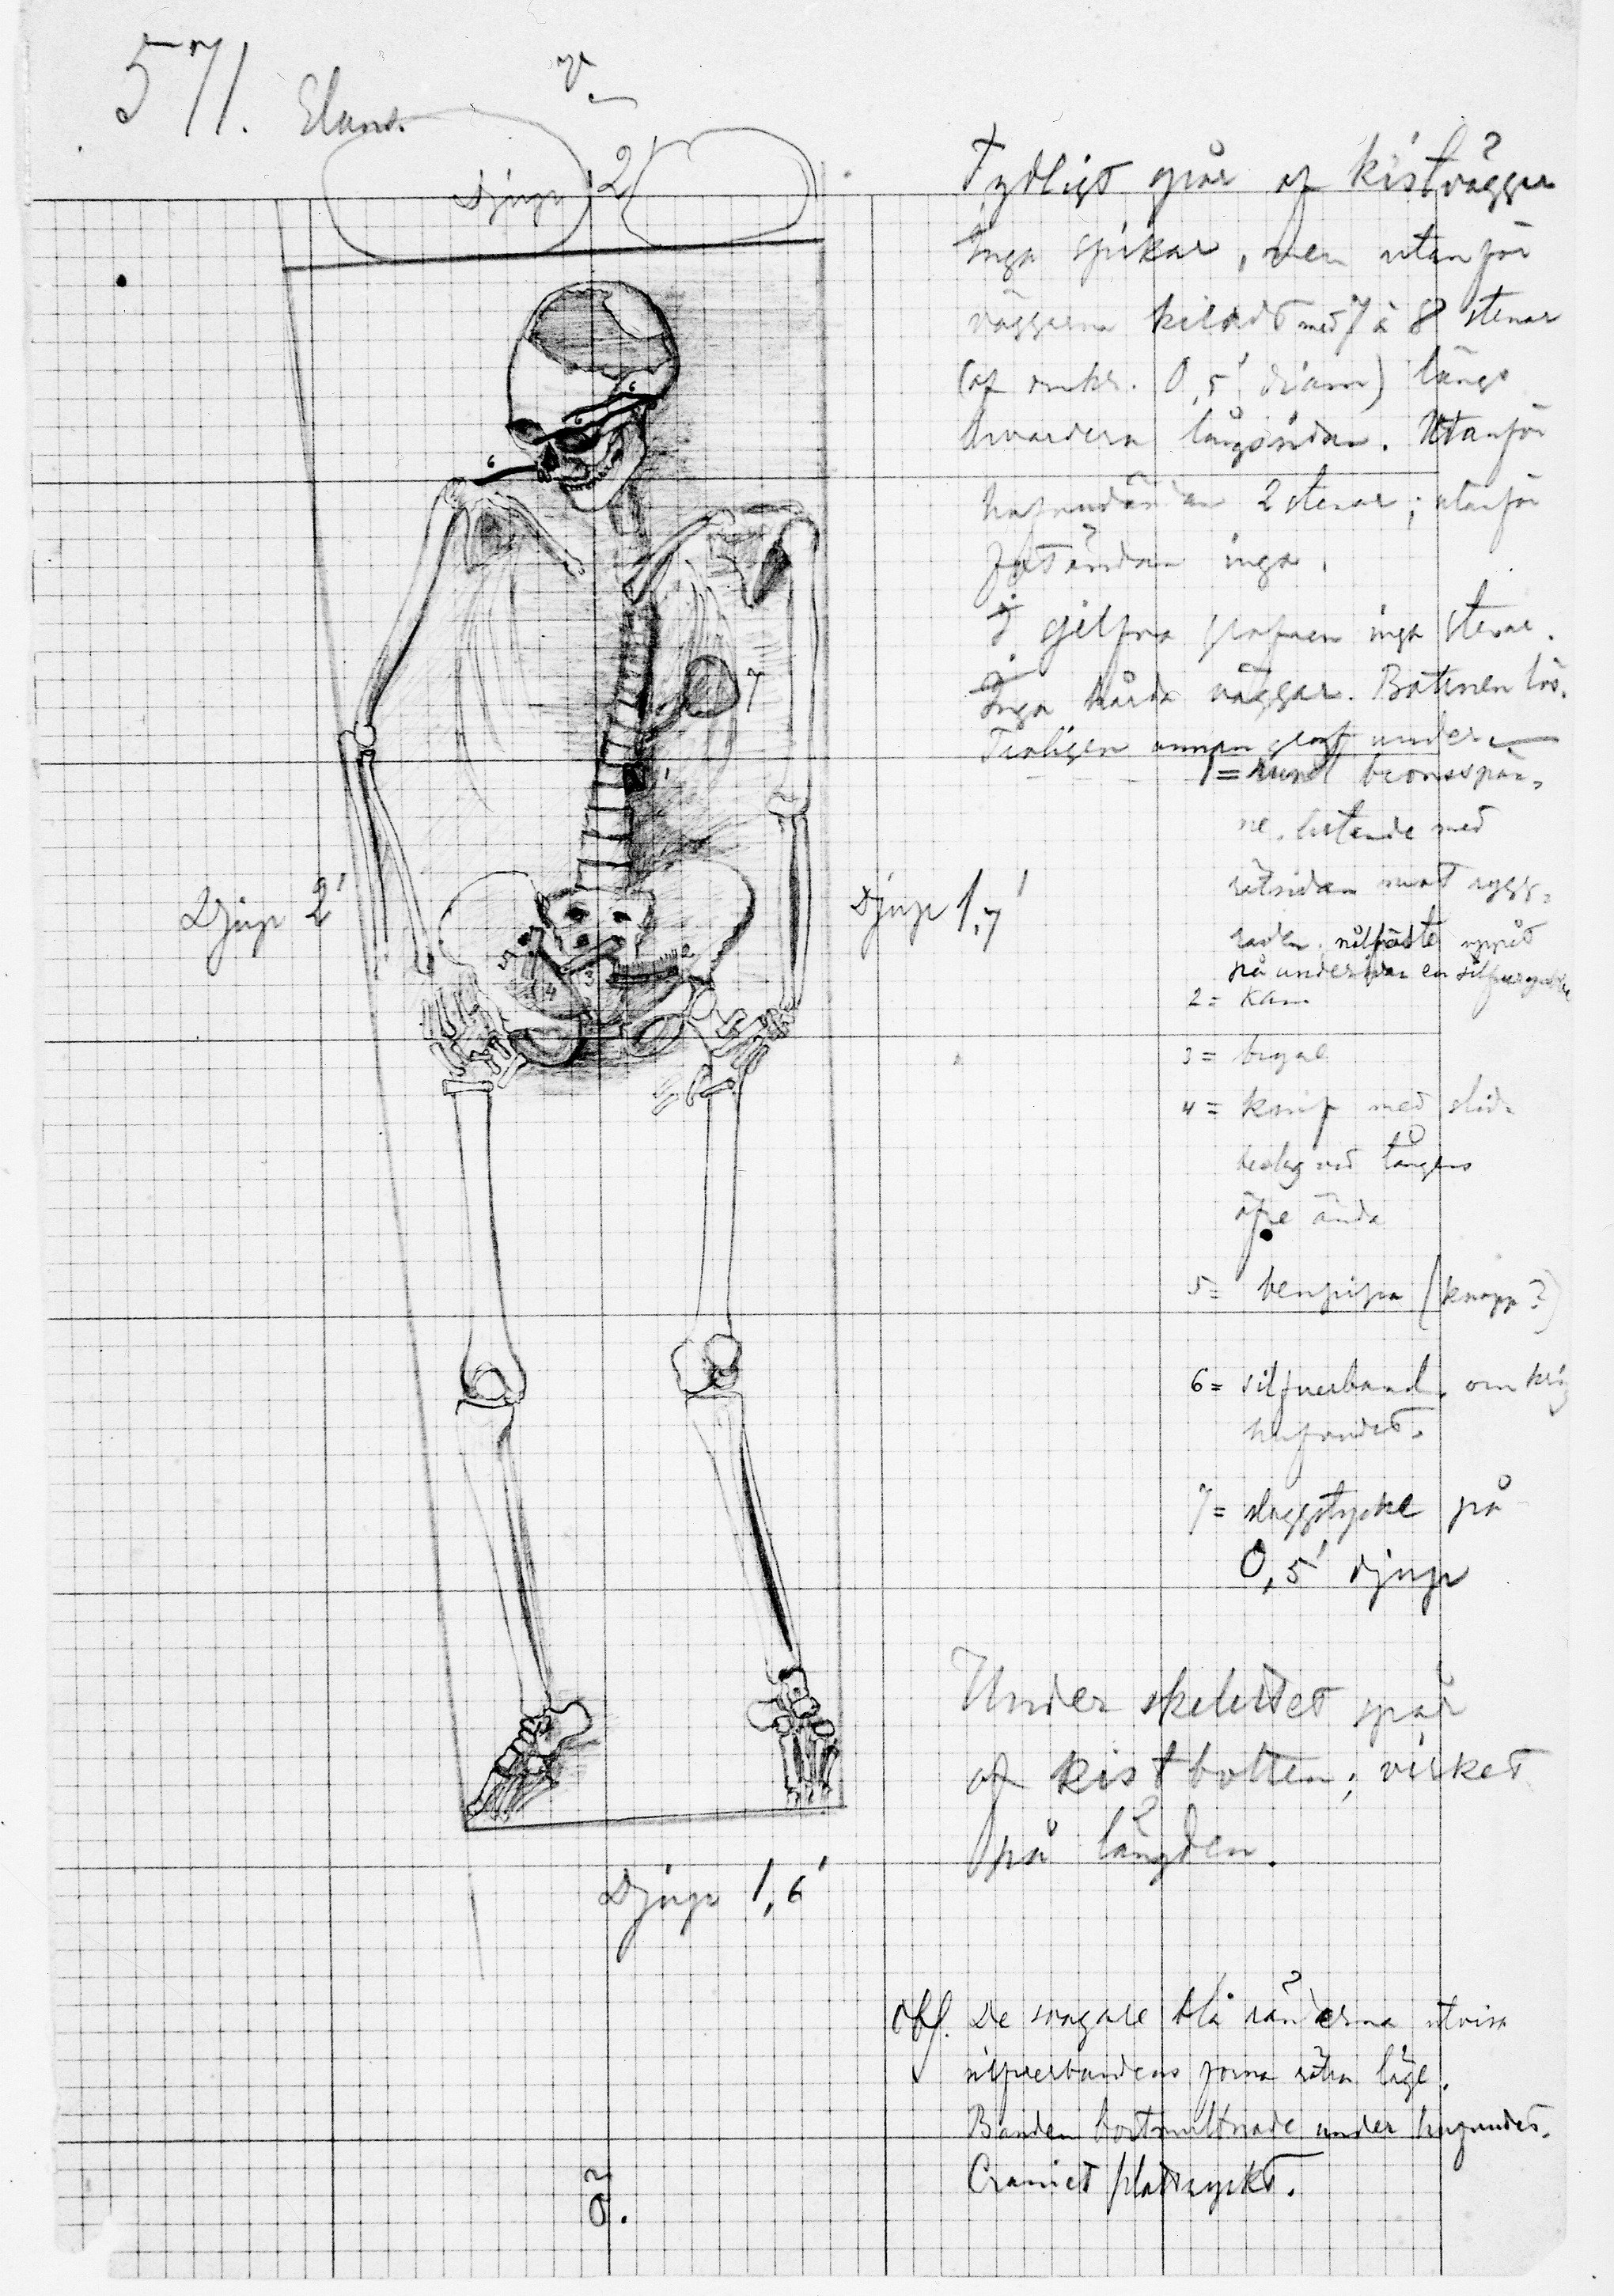 571.
V.
Djup 2
Tydligt spår af kistväggar
Inga spikar, men utanför
väggarna kiladt med 7 à 8 stenar
(af omkr. 0,5' diam) längs
hvardera långsidan. Utanför
hufvudändan 2 stenar; utanför
fotändan inga.
I sjelfva grafven inga stenar.
Inga hårda väggar. Bottnen lös.
Troligen annan graf under.
1 = rundt bronsspän-
ne. lutande med
rätsidan mot rygg-
raden. nålfäste uppåt
på undersidan en
2 = Kam
3 =
4 = knif med slida
beslag vid tångens
öfre ända
5 = benpipa (knapp?)
6 = silfverband, omkring
hufvudet.
7 = slaggstycke på
0,5' djup
6
6
6
7
1
5
4
3
2
Djup 2'
Djup 1,7'
Under skelettet spår
af kistbotten; virket
på längden.
Djup 1,6'
Obs. De svagare blå ränderna utvisa
silfverbandens forna rätta läge.
Banden bortmultnade under hufvudet.
Craniet plattryckt.
Ö.